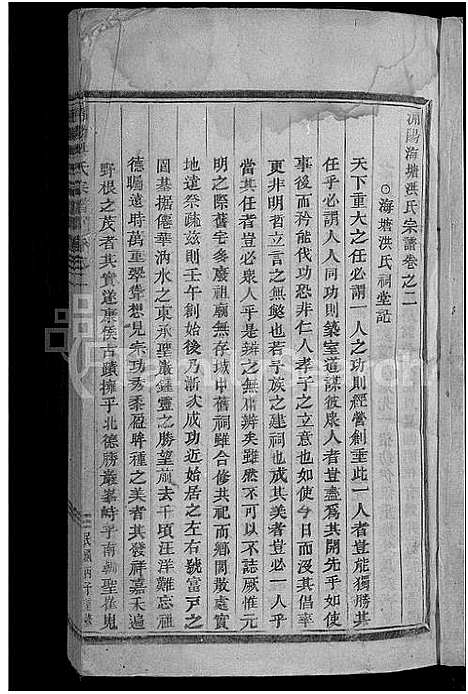 浦陽海塘洪氏宗譜卷之二
○海塘洪氏祠堂記
天下重大之任必謂一人之功則經營創垂此一人者豈能獨勝其
任乎必謂人人同功則築室道謀彼衆人者豈盡爲其開先乎如使
事後而矜能伐功恐非仁人孝子之立意也如使今日而沒其倡率
更非明哲立言之無慾也若乎族之建祠也成其美者豈必一人乎
當其任者豈必衆人乎是辨之無庸辨矣雖然不可以不誌厥惟元
明之際舊宅多慶祖廟無存城中舊祠雖合修共祀而鄉閭散處實
地遠祭疏茲則壬午創始後乃漸次成功近始居之左右號富戸之
固基據僊華汭水之東承聖巖鍾靈之勝望前去千頃汪洋難忘祖
德矚遠時萬重翠聳想見宗功秀黍盈眸種之美者其發祥嘉禾遍
野根之茂者其實遂康侯古蹟擁乎北德勝巖峯峙乎南朝聖崔嵬
民國丙子重修